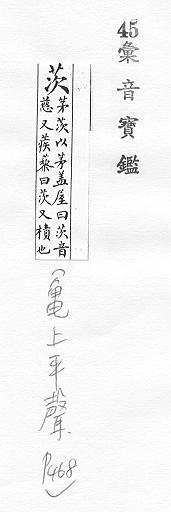 45彙音寶鑑
茨茅茨以茅盖屋曰茨音
慈又蒺藜曰茨又積也
(龜上平聲P468)